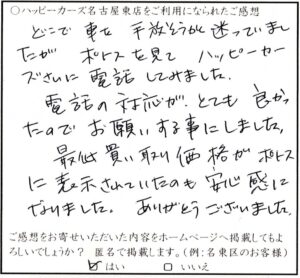 ○ハッピーカーズ名古屋東店をご利用になられたご感想
どこで車を手放そうか迷っていまし
たが ポストを見て ハッピーカー
ズさんに電話してみました。
電話の対応が、とても良かっ
たので お願いする事にしました。
最低買い取り価格がポスト
に表示されていたのも安心感に
なりました。ありがとうございました。
ご感想をお寄せいただいた内容をホームページへ掲載してもよ
ろしいでしょうか? 匿名で掲載します。(例:名東区のお客様)
☑はい □いいえ